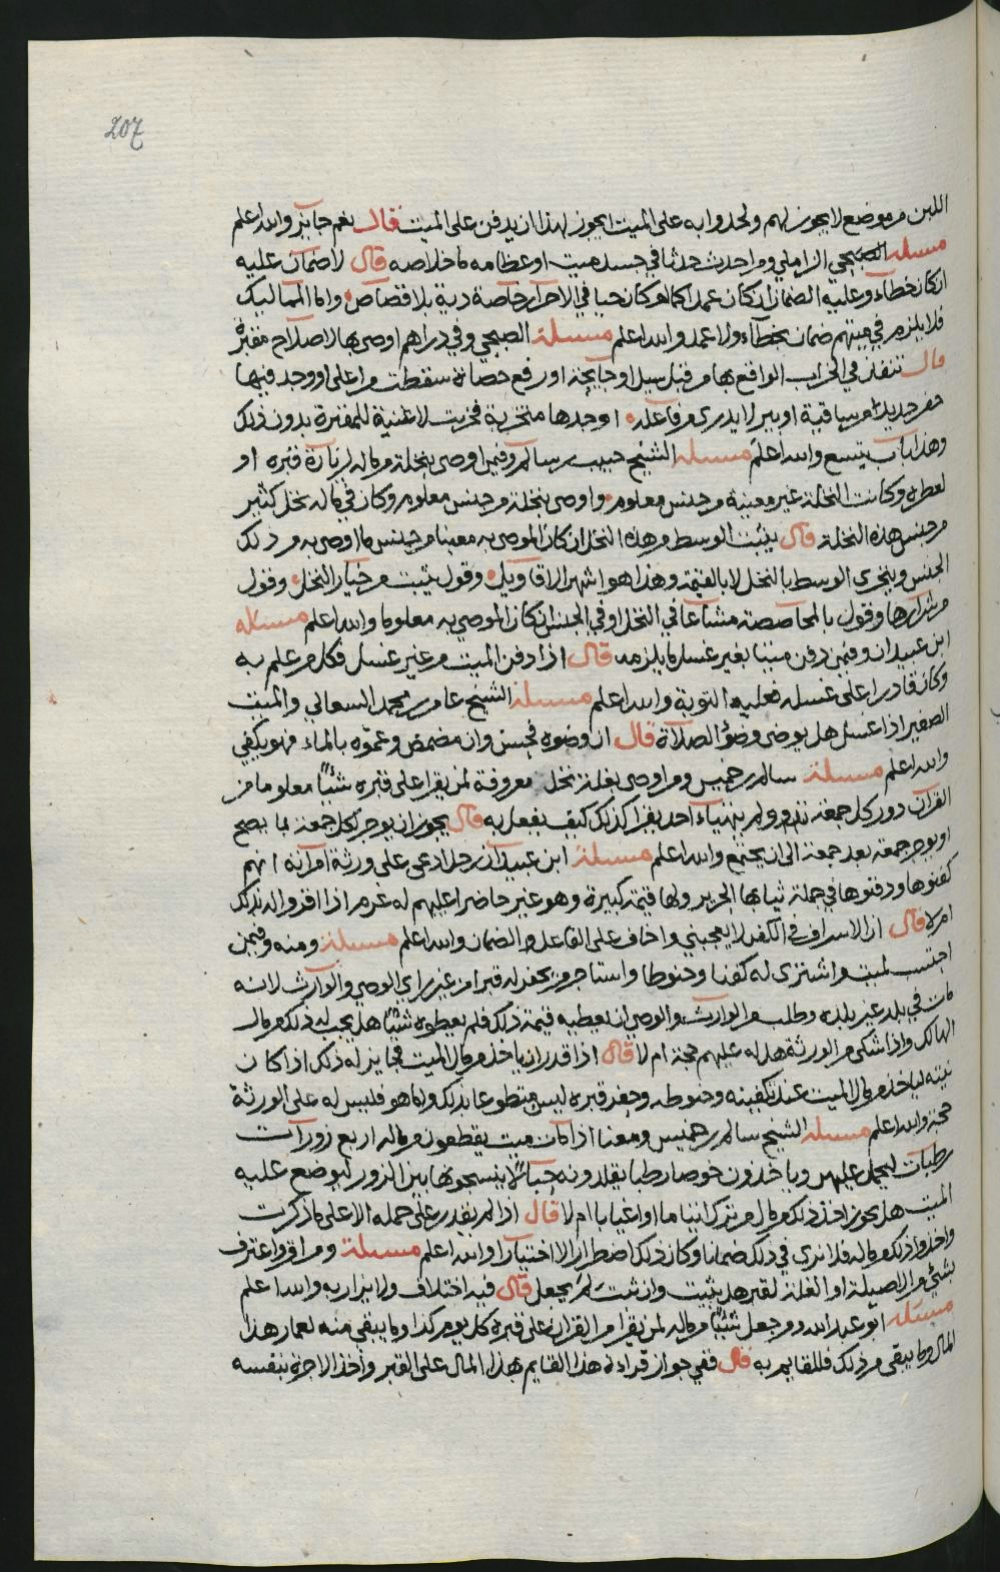 207
اللبن من موضع لا يجوز لهم ولحدوا به على الميت ايجوز لهذا ان يدفن على الميت قال نعم جايز والله اعلم
مسئلة الصبحي الزاملي ومن احدث حدثا في جسد ميت او عظامه ما خلاصه قال لا ضمان عليه
ان كان خطاء وعليه الضمان ان كان عمدا كما لو كان حيا في الاحرار خاصة دية بلا قصاص واما المماليك
فلا يلزم في ميتهم ضمان بخطاء ولا عمد والله اعلم مسئلة الصبحي وفي دراهم اوصى بها لاصلاح مقبرة
قال تنفذ في الخراب الواقع بها من قبل سيل او جايحة او رفع حصاة سقطت من اعلى او وجد فيها
حفر جديد من ساقية او بير لا يدرى من فاعله او وجدها متخربة فخربت لا غنية للمقبرة بدون ذلك
وهذا باب يتسع والله اعلم مسئلة الشيخ حبيب بن سالم وفيمن اوصى بنخلة من ماله لزيارة قبره او
لفطرة وكانت النخلة غير معينة من جنس معلوم واوصى بنخلة من جنس معلوم وكان في ماله نخل كثير
من جنس هذه النخلة قال يثبت الوسط من هذه النخل ان كان الموصى به معينا من جنس ما اوصى به من ذلك
الجنس ويتحرى الوسط بالنخل لا بالقيمة وهذا هو اشهر الاقاويل وقول يثبت من خيار النخل وقول
من شرارها وقول بالمحاصصة مشاعا في النخل او في الجنس ان كان الموصى به معلوما والله اعلم مسئلة
ابن عبيدان وفيمن دفن ميتا بغير غسل ما يلزمه قال اذا دفن الميت من غير غسل فكل من علم به
وكان قادرا على غسله فعليه التوبة والله اعلم مسئلة الشيخ عامر بن محمد السعالي والميت
الصغير اذا غسل هل يوضى وضوء الصلاة قال ان وضوه فحسن وان مضمض وعموه بالماء فهو يكفي
والله اعلم مسئلة سالم بن خميس ومن اوصى بغلة نخل معروفة لمن يقرا على قبره شيئا معلوما من
القران دور كل جمعة ولم يتهياء احد يقرا كذلك كيف يفعل به قال يجوز ان يوجر كل جمعة بما يصح
او يوجر جمعة بعد جمعة الى ان يجتمع والله اعلم مسئلة ابن عبيدان رجل ادعى على ورثة امراته انهم
كفنوها ودفنوها في جملة ثيابها الحرير ولها قيمة كبيرة وهو غير حاضر اعليهم له غرم اذا اقروا له بذلك
ام لا قال ان الاسراف في الكفن لا يعجبني واخاف على الفاعل الضمان والله اعلم مسئلة ومنه وفيمن
احتسب لميت واشترى له كفنا وحنوطا واستاجر من يحفر له قبرا من غير راي الوصي والوارث لانه
مات في بلد غير بلده وطلب من الوارث والوصي ان يعطيه قيمة ذلك فلم يعطوه شيئا هل يجب له ذلك من مال
الهالك واذا شكى من الورثة هل له عليهم حجة ام لا قال اذا قدر ان ياخذ من مال الميت فجايز له ذلك اذا كان
نيته لياخذ من مال الميت عند تكفينه وحنوطه وحفر قبره ليس متطوعا بذلك واما هو فليس له على الورثة
حجة والله اعلم مسئلة الشيخ سالم بن خميس ومعنا اذا كان ميت يقطعون من ماله اربع زورات
رطبات ليحمل عليهن وياخذون خوصا رطبا يقلدونه حبالا ينسجونها بين الزور ليوضع عليه
الميت هل يجوز اخذ ذلك من مال من ترك ايتاما او اغيابا ام لا قال اذا لم يقدر على حمله الا على ما ذكرت
واخذوا ذلك من ماله فلا نرى في ذلك ضمانا وكان ذلك اضطرارا لا اختيارا والله اعلم مسئلة ومن اقر واعترف
بشي من الاصيلة او الغلة لقبر هل يثبت وان ثبت لم يجعل قال فيه اختلاف ولا يزار به والله اعلم
مسئلة ابو عبد الله ومن جعل شيئا من ماله لمن يقرا من القران على قبره كل يوم كذا وما يبقى منه لعمار هذا
المال وما يبقى من ذلك فللقايم به قال ففي جواز قراءة هذا القايم بهذا المال على القبر واخذ الاجرة بنفسه